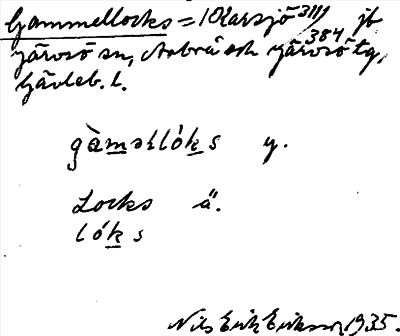 Gammellocks = 1 Karsjö 311/384 jb
Järvsö sn, Arbrå och Järvsö tg,
Gävleb. l.
gàmǝllók s y.
Locks ä.
lók s
Nils Erik Eriksson 1935.